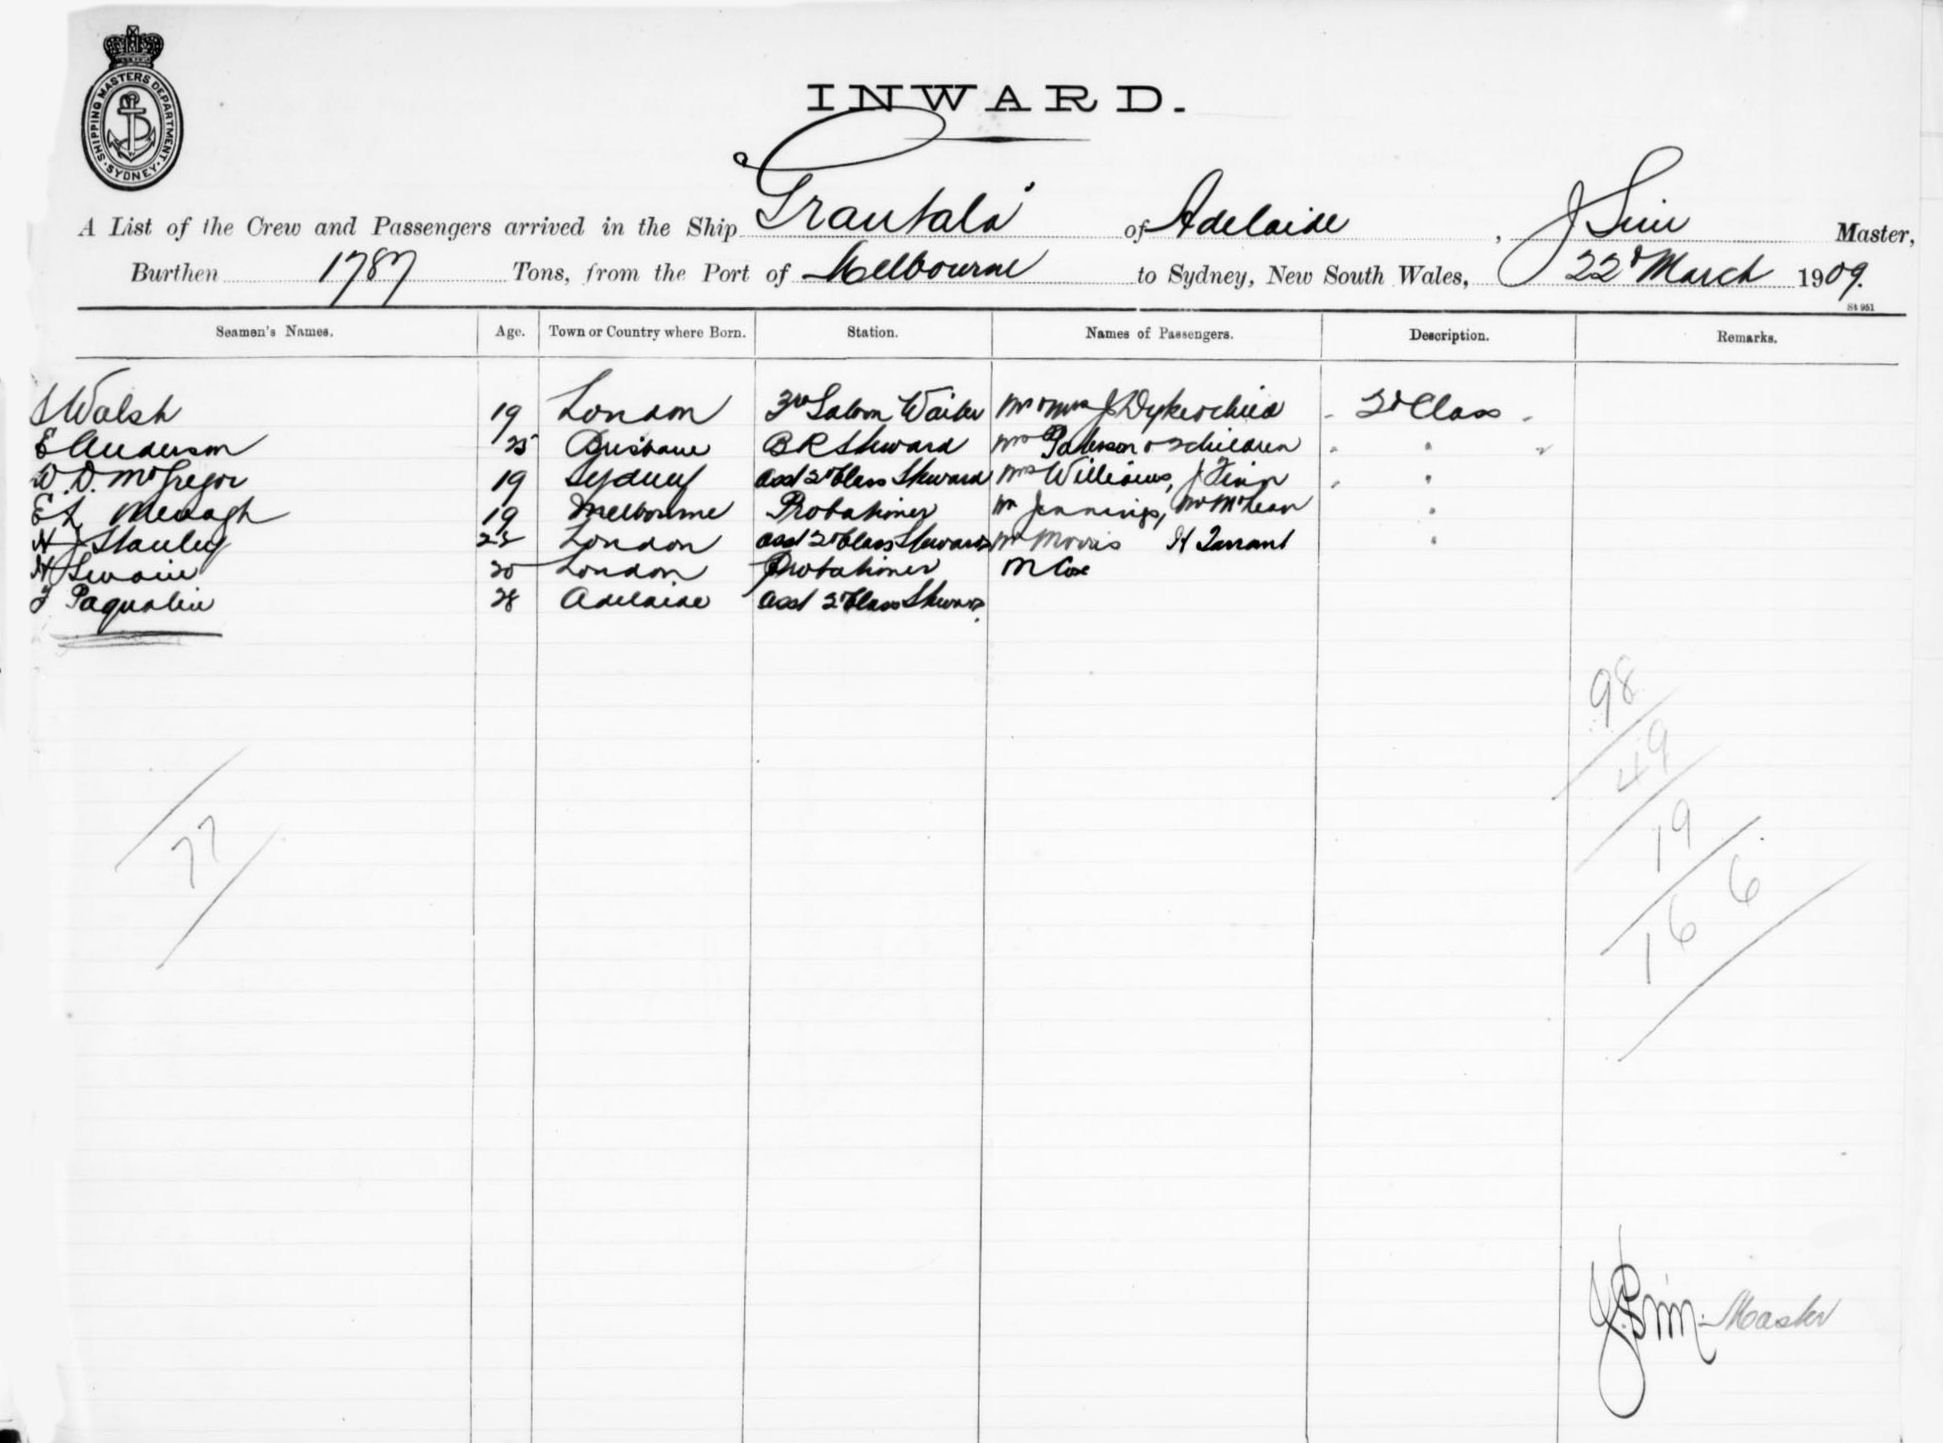 SHIPPING MASTERS DEPARTMENT. SYDNEY.
INWARD.
A List of the Crew and Passengers arrived in the Ship Grantala of Adelaide, J Sim Master,
Burthen 1787 Tons, from the Port of Melbourne to Sydney, New South Wales, 22d March 1909.
St 951
Seamen's Names. Age. Town or Country where Born. Station. Names of Passengers. Description. Remarks.
Walsh 19 London Saloon Waiter Mr & Mrs J Dyke & child - 2d Class -
E Anderson 25 Brisbane BR Steward Paterson & 2 children "
W. D. McGregor 19 Sydney asst 2d Class Steward Mrs Williams, J Finn "
19 Melbourne Probationer Mr Jennings, Mr McLean "
H J Stanley London asst 2d Class Steward Mr Morris H Tarrant "
H Swain 20 London Probationer M Cox
28 Adelaide asst 2d Class Steward
98
49
77
19
6
16
J. Sim. Master